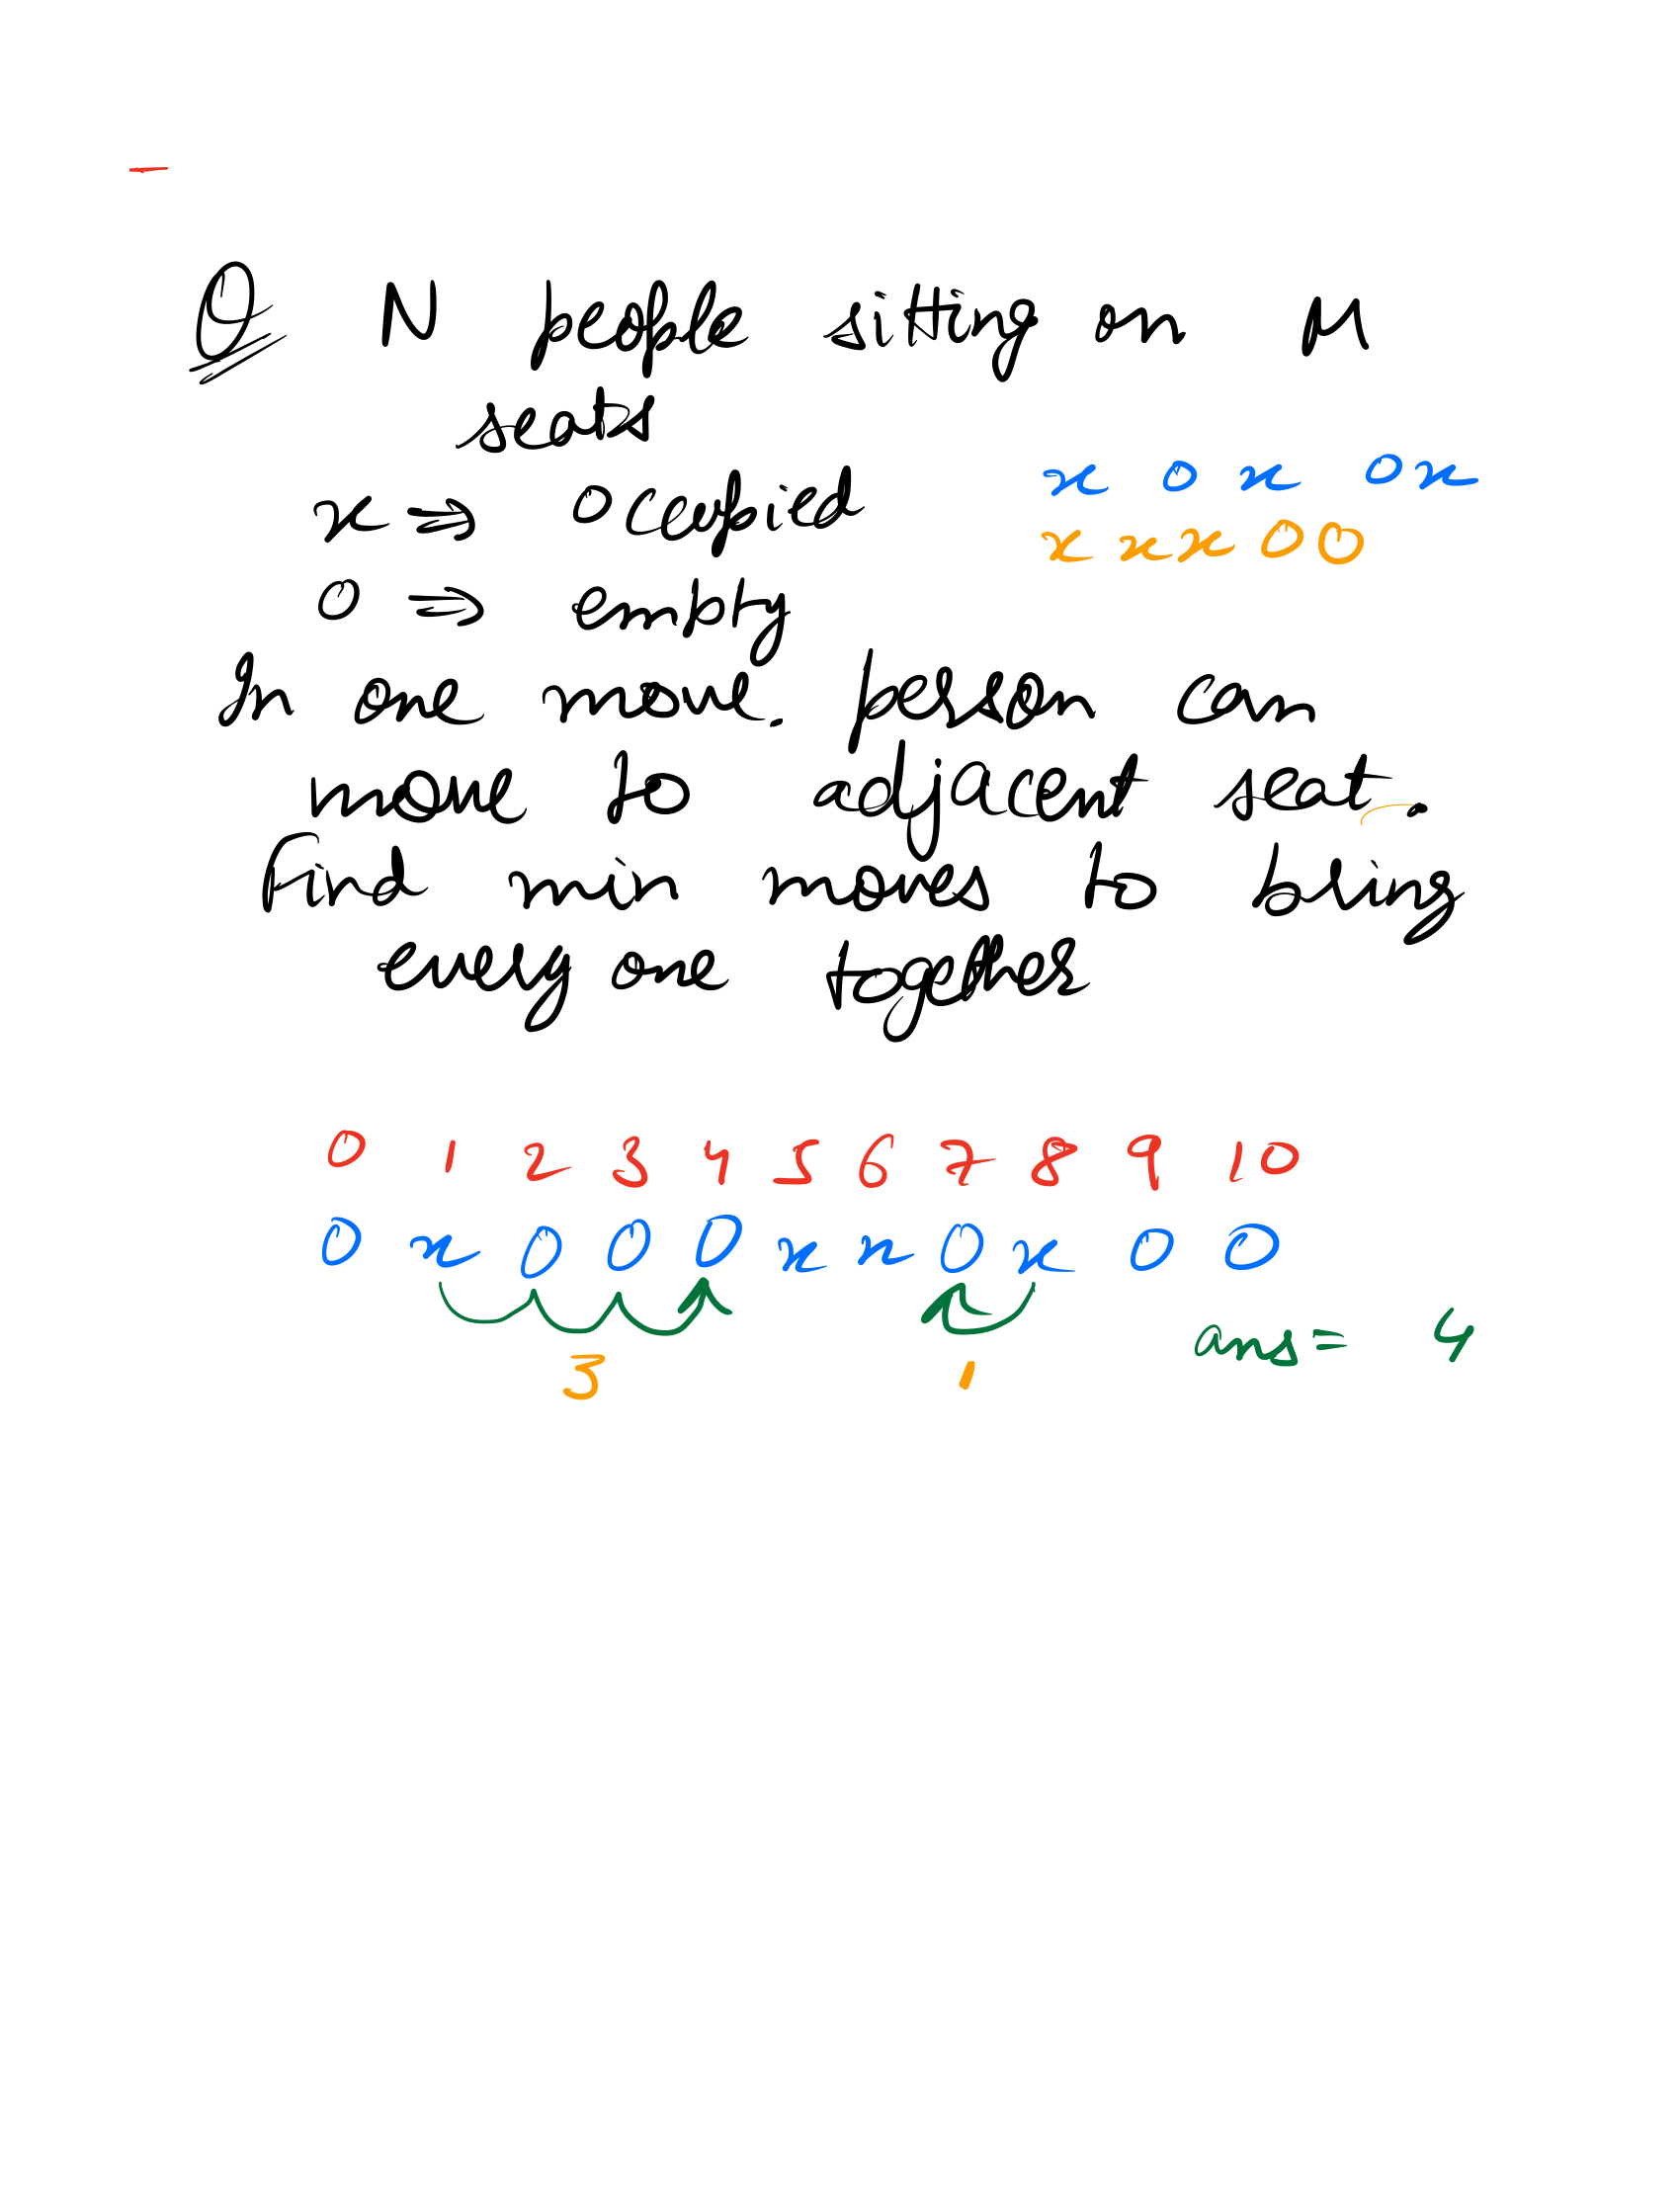 Q N people sitting on M
seats
x ⇒ Occupied
x 0 x 0 x
x x x 0 0
0 ⇒ empty
In one move. person can
move to adjacent seat.
Find min moves to bring
every one together
0 1 2 3 4 5 6 7 8 9 10
0 x 0 0 0 x x 0 x 0 0
3 1
ans = 4